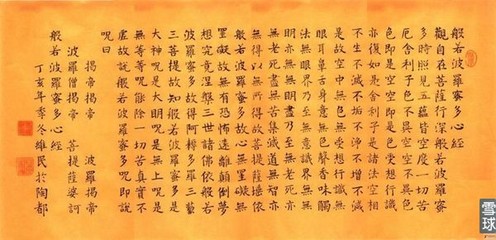 般若波羅蜜多心經
觀自在菩薩行深般若波羅蜜
多時照見五蘊皆空度一切苦
厄舍利子色不異空空不異色
色即是空空即是色受想行識
亦復如是舍利子是諸法空相
不生不滅不垢不淨不增不減
是故空中無色無受想行識無
眼耳鼻舌身意無色聲香味觸
法無眼界乃至無意識界無無
明亦無無明盡乃至無老死亦
無老死盡無苦集滅道無智亦
無得以無所得故菩提薩埵依
般若波羅蜜多故心無罣礙無
罣礙故無有恐怖遠離顛倒夢
想究竟涅槃三世諸佛依般若
波羅蜜多故得阿耨多羅三藐
三菩提故知般若波羅蜜多是
大神呪是大明呪是無上呪是
無等等呪能除一切苦真實不
虛故說般若波羅蜜多呪即說
呪曰
揭帝揭帝 波羅揭帝
波羅僧揭帝 菩提薩婆訶
般若波羅蜜多心經
丁亥年季冬雄民於陶都
雪球